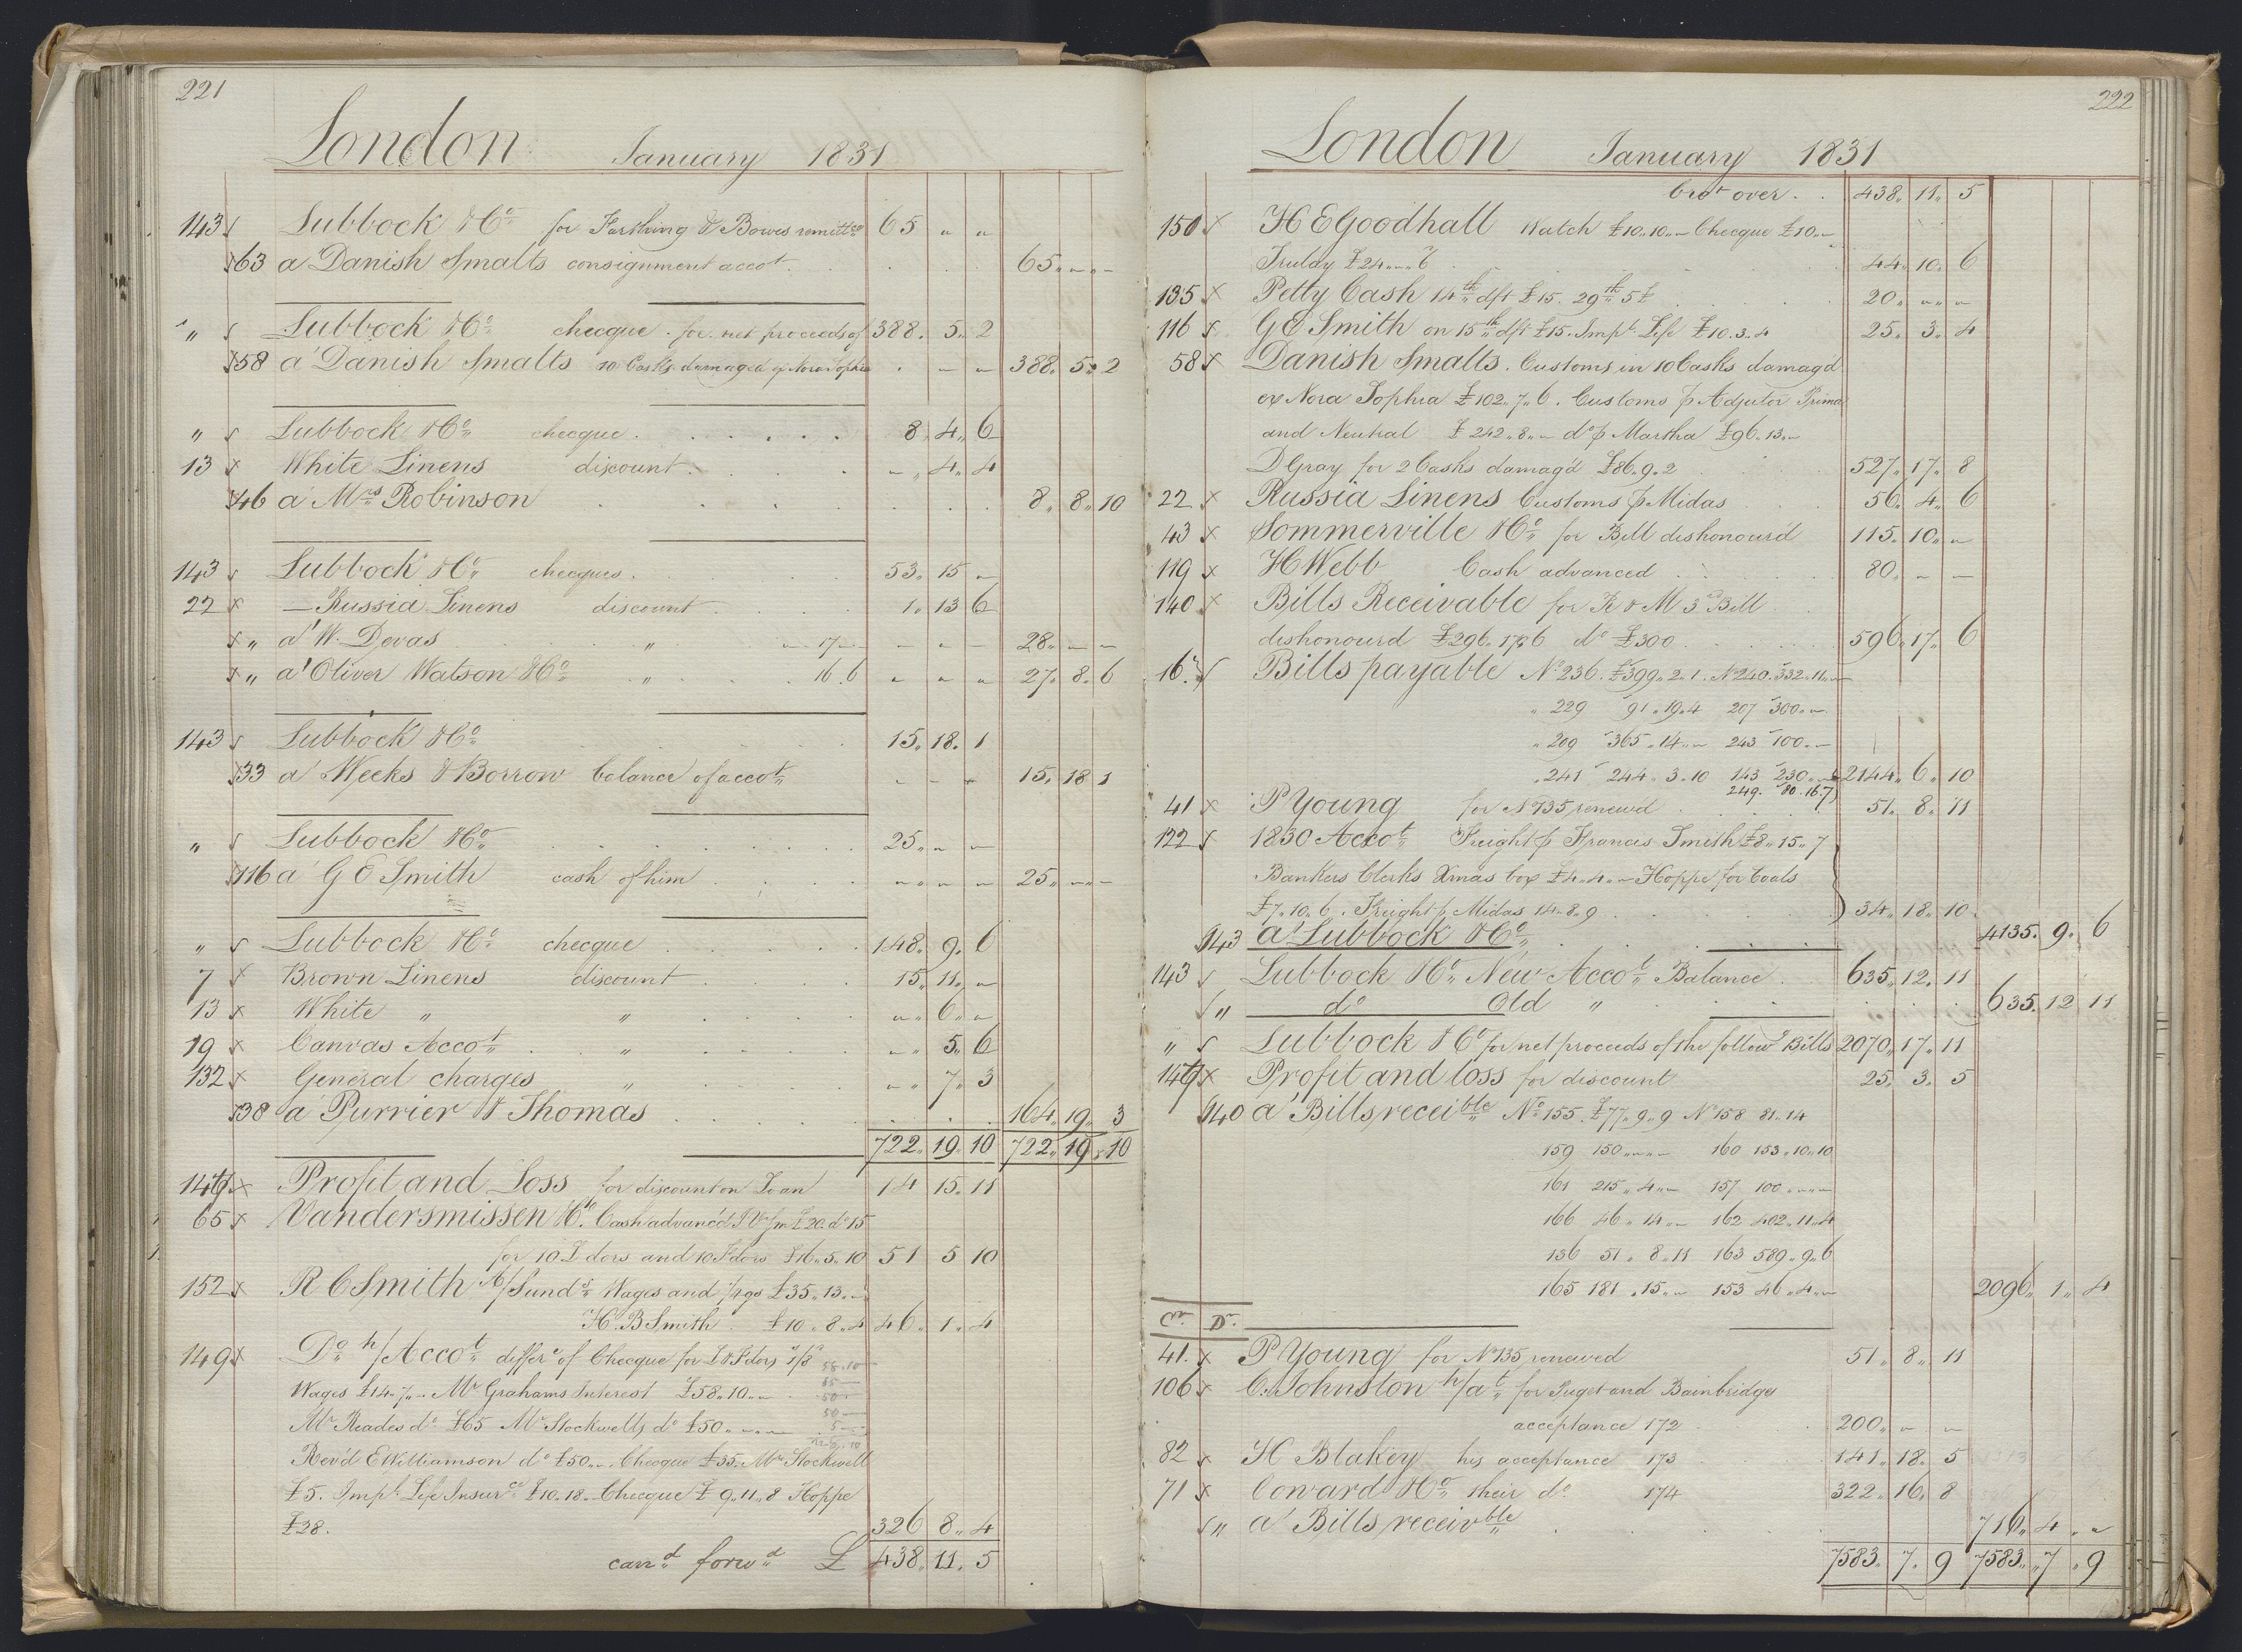 221
London January 1831
143 Lubbock & Co for Farthing & Bowes remittce 65 " "
63 a Danish Smalts consignment accot. 65 " " –
" Lubbock & Co checque for net proceeds of 388. 5. 2
58 a Danish Smalts 10 Casks damaged ex Nora Sophia 388. 5. 2
" Lubbock & Co checque 8. 4. 6
13 x White Linens discount " 4. 4
46 a Mrs Robinson 8. 8. 10
143 Lubbock & Co checques 53. 15 "
22 x – Russia Linens discount 1. 13 6
x " a' W. Devas " " 17 – 28 " "
x " a' Oliver Watson & Co " 16. 6 27. 8. 6
143 Lubbock & Co 15. 18. 1
33 a Weeks & Borrow balance of accot 15. 18 1
" Lubbock & Co 25 " "
116 a G E Smith cash of him 25 " " –
" Lubbock & Co checque 148. 9. 6
7 x Brown Linens discount 15. 11. "
13 x White " " " 6 "
19 x Canvas Accot " " 5. 6
132 x General charges " " 7. 3
38 a Purrier & Thomas 164. 19. 3
722. 19. 10 722. 19. 10
149 x Profit and Loss for discount on Loan 14 15. 11
65 x Vandersmissen & Co. Cash advanc'd £20. do 15
for 10 L dors and 10 F dors £16. 5. 10 51 5 10
152 x R C Smith A/Sunds Wages and £35. 13. –
H. B Smith £10. 8. 4 46. 1. 4
149 x Do h/Accot differe of Checque for L & F dors 1/8
Wages £14. 7. – Mr Grahams Interest £58. 10. –
Mr Reades do £65 Mr Stockwells do £50. " –
Rev'd E Williamson do £50. – Checque £35. Mr Stockwell
£5. Impl Life Insurce £10. 18. Checque £9. 11. 8 Hoppe
£28. 326 8. 4
carrd forwd £ 438. 11. 5
222
London January 1831
brot over 438. 11. 5
150 x H E Goodhall Watch £10. 10. – Checque £10. –
Truldy £24. – 6 44. 10. 6
135 x Petty Cash 14th dft £15. 29th 5£ 20. " –
116 x G E Smith on 15th dft £15. Impl Life £10. 3. 4 25. 3. 4
58 x Danish Smalts. Customs in 10 Casks damag'd
ex Nora Sophia £102. 7. 6. Customs p Adjutor Prima
and Neutral £242. 8. – do p Martha £96. 13. –
D Gray for 2 Casks damag'd £86. 9. 2 527. 17. 8
22 x Russia Linens Customs p Midas 56. 4. 6
43 x Sommerville & Co for Bill dishonour'd 115. 10. "
119 x H Webb Cash advanced 80. – –
140 x Bills Receivable for R & M 3d Bill
dishonourd £296. 17. 6 do £300 596. 17. 6
16 Bills payable No 236. £399. 2. 1. No 240. 332. 11. –
" 229 91. 19. 4 207 300. –
" 209 365. 14. – 243 100. –
" 241 244. 3. 10 143 230. – 2144. 6. 10
249. 80. 16. 7
41 x P Young for No 135 renewd 51. 8. 11
122 x 1830 Accot Freight p Francis Smith £8. 15. 7
Bankers Clerks Xmas box £4. 4. – Hoppe for Coals
£7. 10. 6. Freight p Midas 14. 8. 9 34. 18. 10
143 a' Lubbock & Co 4135. 9. 6
143 Lubbock & Co New Accot Balance 635. 12. 11
" do Old " 635. 12 11
" Lubbock & Co for net proceeds of the follows Bills 2070. 17. 11
149 x Profit and loss for discount 25. 3. 5
140 a' Bills receible No 155. £77. 9. 9 No 158 81. 14
159 150. – – 160 153. 10. 10
161 215. 4. – 157 100. – –
166 46. 14. – 162 402. 11. 4
136 51. 8. 11 163 589. 9. 6
165 181. 15. – 153 46. 4. – 2096. 1. 4
Cr. Dr.
41. x P Young for No 135 renewed 51. 8. 11
106 x C. Johnston h/at for Puget and Bainbridges
acceptance 172 200. " –
82 x H Blakey his acceptance 173 141. 18. 5
71 x Coward & Co their do 174 322. 16. 8
" a' Bills receivble 716. 4. "
7583. 7. 9 7583. 7. 9